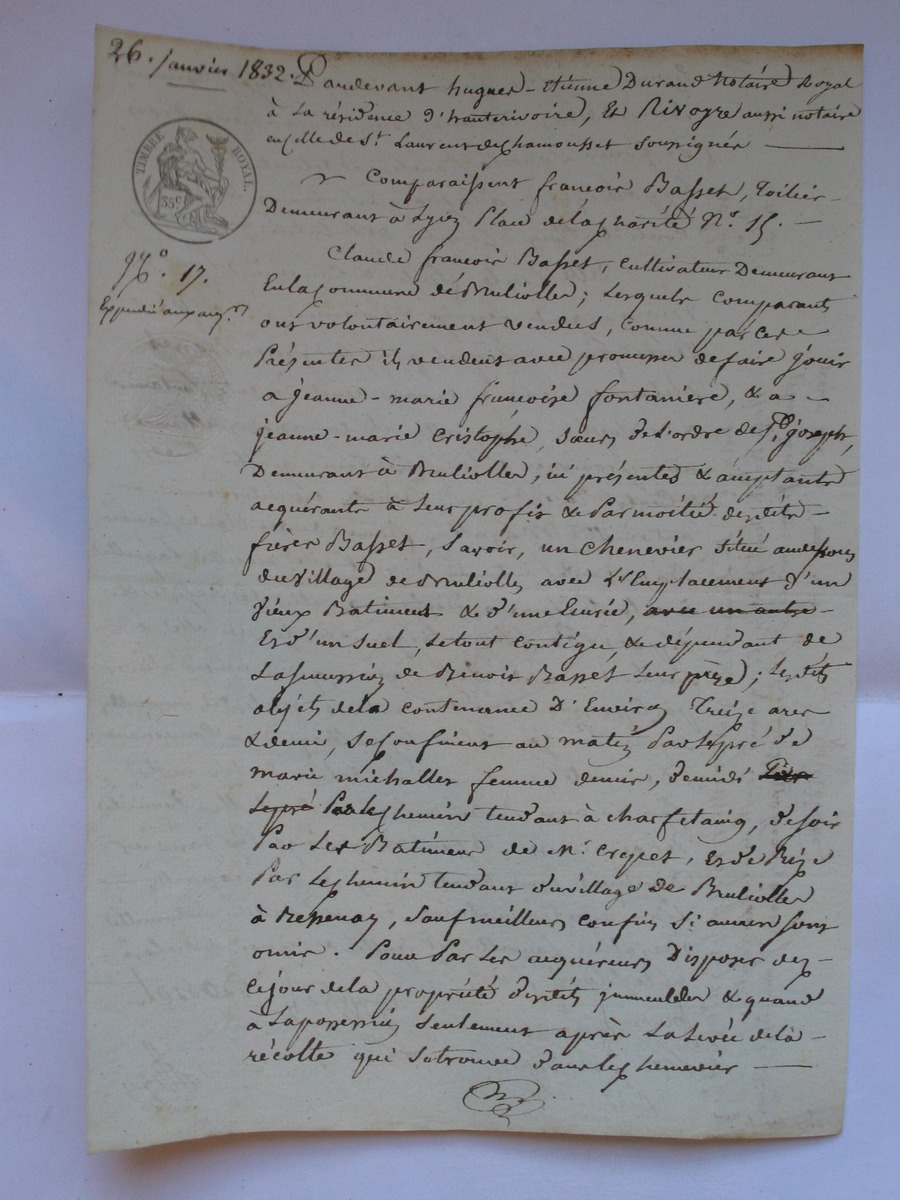 26. janvier 1832. Pardevant hugues-étienne Durand Notaire Royal
à La résidence d'hauterivoire, Et Rivoyre aussi notaire
en Celle de St. Laurent de Chamousset soussignés
TIMBRE ROYAL.
35c
Comparaissent françois Basset, Toilier
Demeurant à Lyon Place de la Charité N.o 15.
N.o 17.
Claude françois Basset, Cultivateur Demeurant
En la Commune de Brullioles; Lesquels Comparants
ont volontairement vendus, comme par ces
Présentes ils vendent avec promesse de faire jouir
à jeanne-marie françoise fontaniere, & a
jeanne-marie Cristophe, sœurs de l'ordre de St. joseph,
Demeurant à Brullioles, ici présentes & acceptantes
acquérante à Leur profit & Par moitié desdits
frères Basset, Savoir, un Chenevier situé au dessous
du Village de Brullioles avec L'Emplacement d'un
Vieux Batiment & d'une Ecurie, avec un autre
Et d'un Suel, Le tout contigu, & dépendant de
La Succession de Benoit Basset Leur père; Lesdits
objets de la contenance D'Environ Treize ares
& demi, se Confinent au matin Par Le pré de
marie michallet femme denis, de midi
Le pré Par le Chemin tendant à charfetaing, de soir
Par Les Batiments de Mr. Crepet, Et de Bize
Par Le Chemin tendant du village de Brullioles
à Ressenay, Sauf meilleurs confins Si aucuns sont
omis. Pour Par Les acquéreurs Disposer dès
Ce jour de la propriété desdits immeubles & quand
à La possession Seulement après La Levée de la
récolte qui se trouve dans Le Chenevier